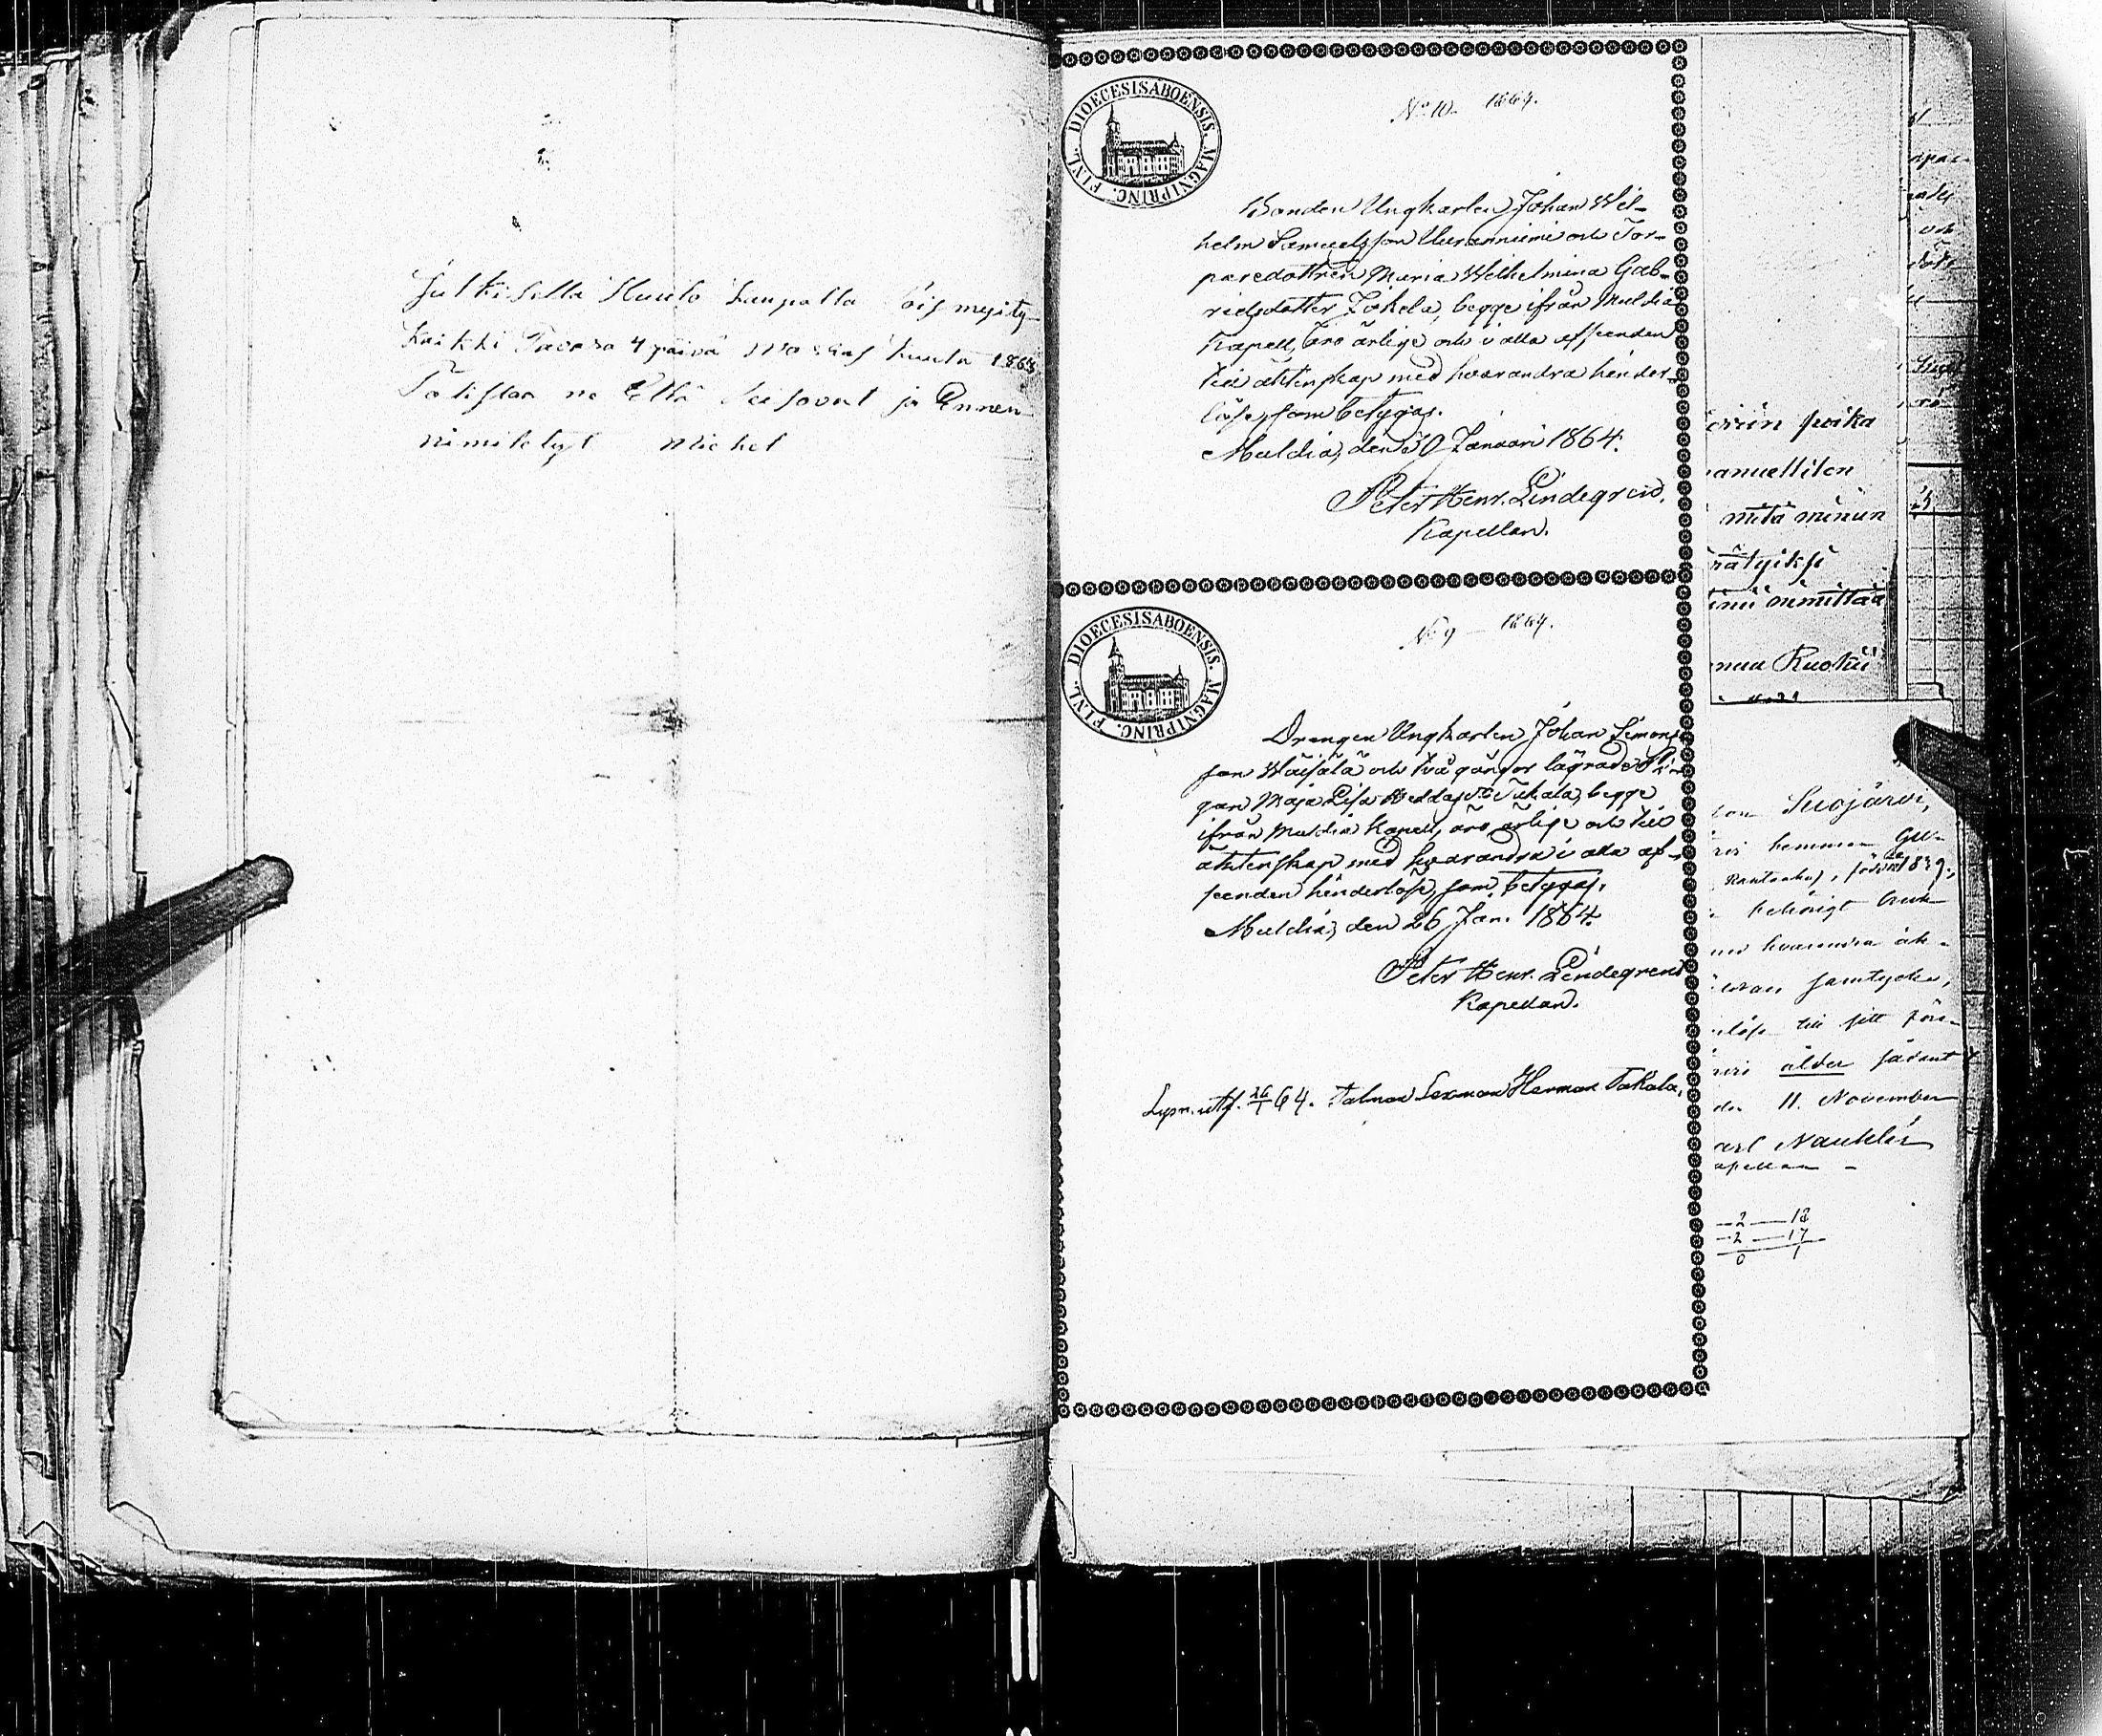 Julkisella Huuto kaupalla öis mejity
Kaikki Tavara 4 päivä Marras kuuta 1863
Todistaa ne Että Seisovat ja Ennen
nimitetyt Michel
DIOECESIS ABOENSIS. MAGNI PRINC. FINL.
No 10 1864.
Bonden Ungkarlen Johan Wil-
helm Samuelsson Uuranniemi och Tor-
paredottren Maria Wilhelmina Gab-
rielsdotter Jokela, begge ifrån Muldia
Kapell, äro ärlige och i alla afseenden
till äktenskap med hvarandra hinder-
löse, som betygas.
Muldia, den 30 Januari 1864.
Peter Henr. Lindegren,
Kapellan.
DIOECESIS ABOENSIS. MAGNI PRINC. FINL.
No 9 1864.
Drengen Ungkarlen Johan Simons-
son Wäisälä och två gångor lägrade Pi-
gan Maja Lisa Heddasdr Tukala, begge
ifrån Muldia Kapell, äro ärlige och till
äktenskap med hvarandra i alla af-
seenden hinderlöse, som betygas.
Muldia, den 26 Jan. 1864.
Peter Henr. Lindegren
Kapellan.
Lysn. uttf. 26/1 64. Talman Sexman Herman Takala,
poika
anuellilen
mitä minun
rätyiksi
nimittää
Ruokii
Suojärvi,
hemman
Rautaahof, född 1839,
behörigt
hvarandra äk-
samtycke,
till sitt före-
ålder sådant
den 11. November
arl Nauklér
apellan
2 18
2 17
0 1